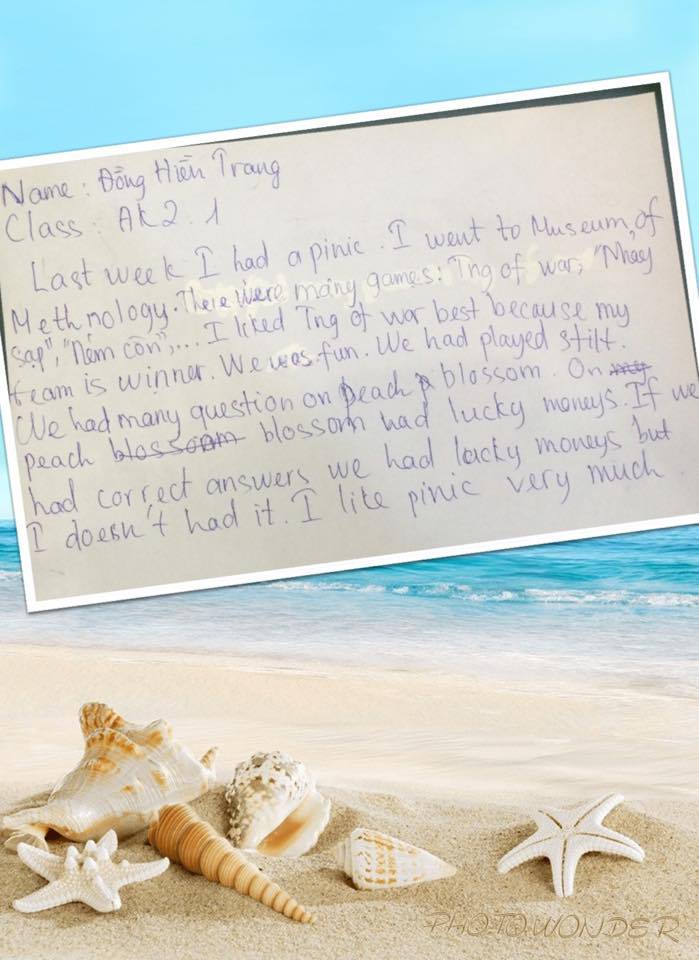 Name: Đồng Hiền Trang
Class: AK2.1
Last week I had a pinic. I went to Museum, of
Methnology. There were many games: Tng of war, "Nhảy
sạp", "Ném còn",... I liked Tng of war best because my
team is winner. We was fun. We had played stilt.
We had many question on peach blossom. On
peach blossom blossom had lucky moneys. If we
had correct answers we had lucky moneys but
I doesn't had it. I like pinic very much
PHOTOWONDER